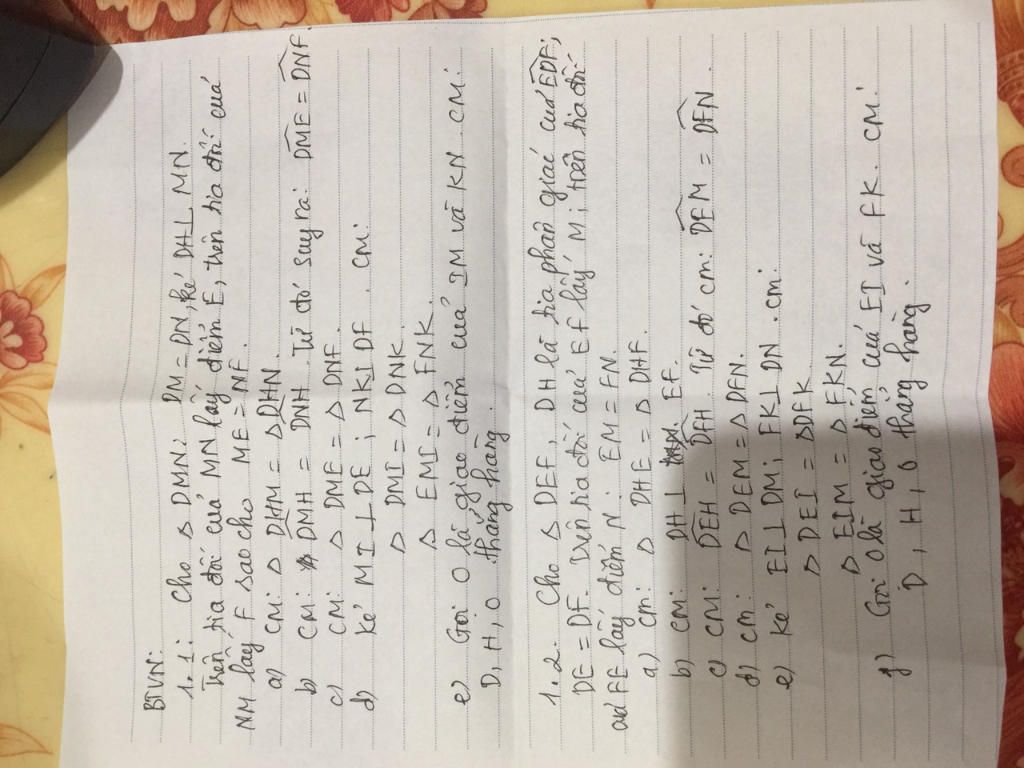 BTVN:
1.1: Cho △ DMN: DM = DN, kẻ DH⊥ MN.
Trên tia đối của MN lấy điểm E, trên tia đối của
NM lấy F sao cho ME = NF.
a) CM: △ DHM = △DHN.
b) CM: DMH = DNH. Từ đó suy ra: DME = DNF.
c) CM: △ DME = △ DNF.
d) Kẻ MI ⊥ DE ; NK⊥ DF. CM:
△ DMI = △ DNK.
△ EMI = △ FNK.
e) Gọi O là giao điểm của IM và KN CM:
D, H, O thẳng hàng.
1.2. Cho △ DEF, DH là tia phân giác của EDF;
DE = DF. Trên tia đối của EF lấy M; trên tia đối
của FE lấy điểm N: EM = FN.
a) Cm: △ DHE = △ DHF.
b) CM: DH ⊥ EF.
c) CM: DEH = DFH. Từ đó cm: DEM = DFN
d) Cm: △ DEM = △ DFN.
e) Kẻ EI ⊥ DM; FK⊥ DN. cm:
△ DEI = △DFK
△ EIM = △ FKN.
g) Gọi O là giao điểm của EI và FK. CM:
D, H, O thẳng hàng.